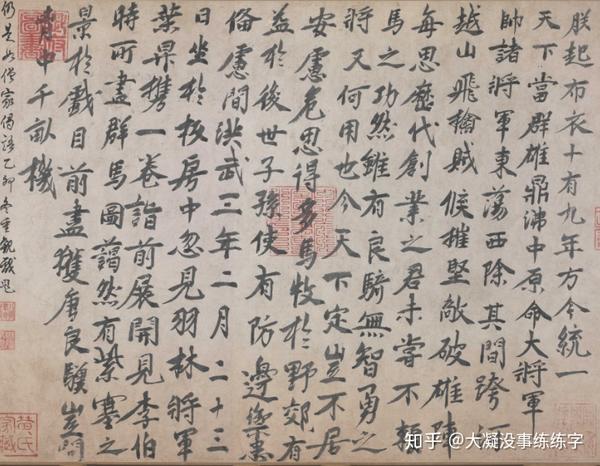 朕起布衣十有九年方今統一
天下當群雄鼎沸中原命大將軍
帥諸將軍東蕩西除其間跨河
越山飛擒賊侯摧堅敵破雄陣
每思歷代創業之君未嘗不賴
馬之功然雖有良騎無智勇之
將又何用也今天下定豈不居
安慮危思得多馬牧於野郊有
益於後世子孫使有防邊禦患
俻慮間洪武三年二月二十三
日坐於板房中忽見羽林將軍
葉昇攜一卷詣前展開見李伯
時所畫群馬圖藹然有紫塞之
景於戲目前盡獲唐良驥豈問
胷中千畝機
僧家偈語乙卯冬重觀戲題
知乎 @大凝没事练练字